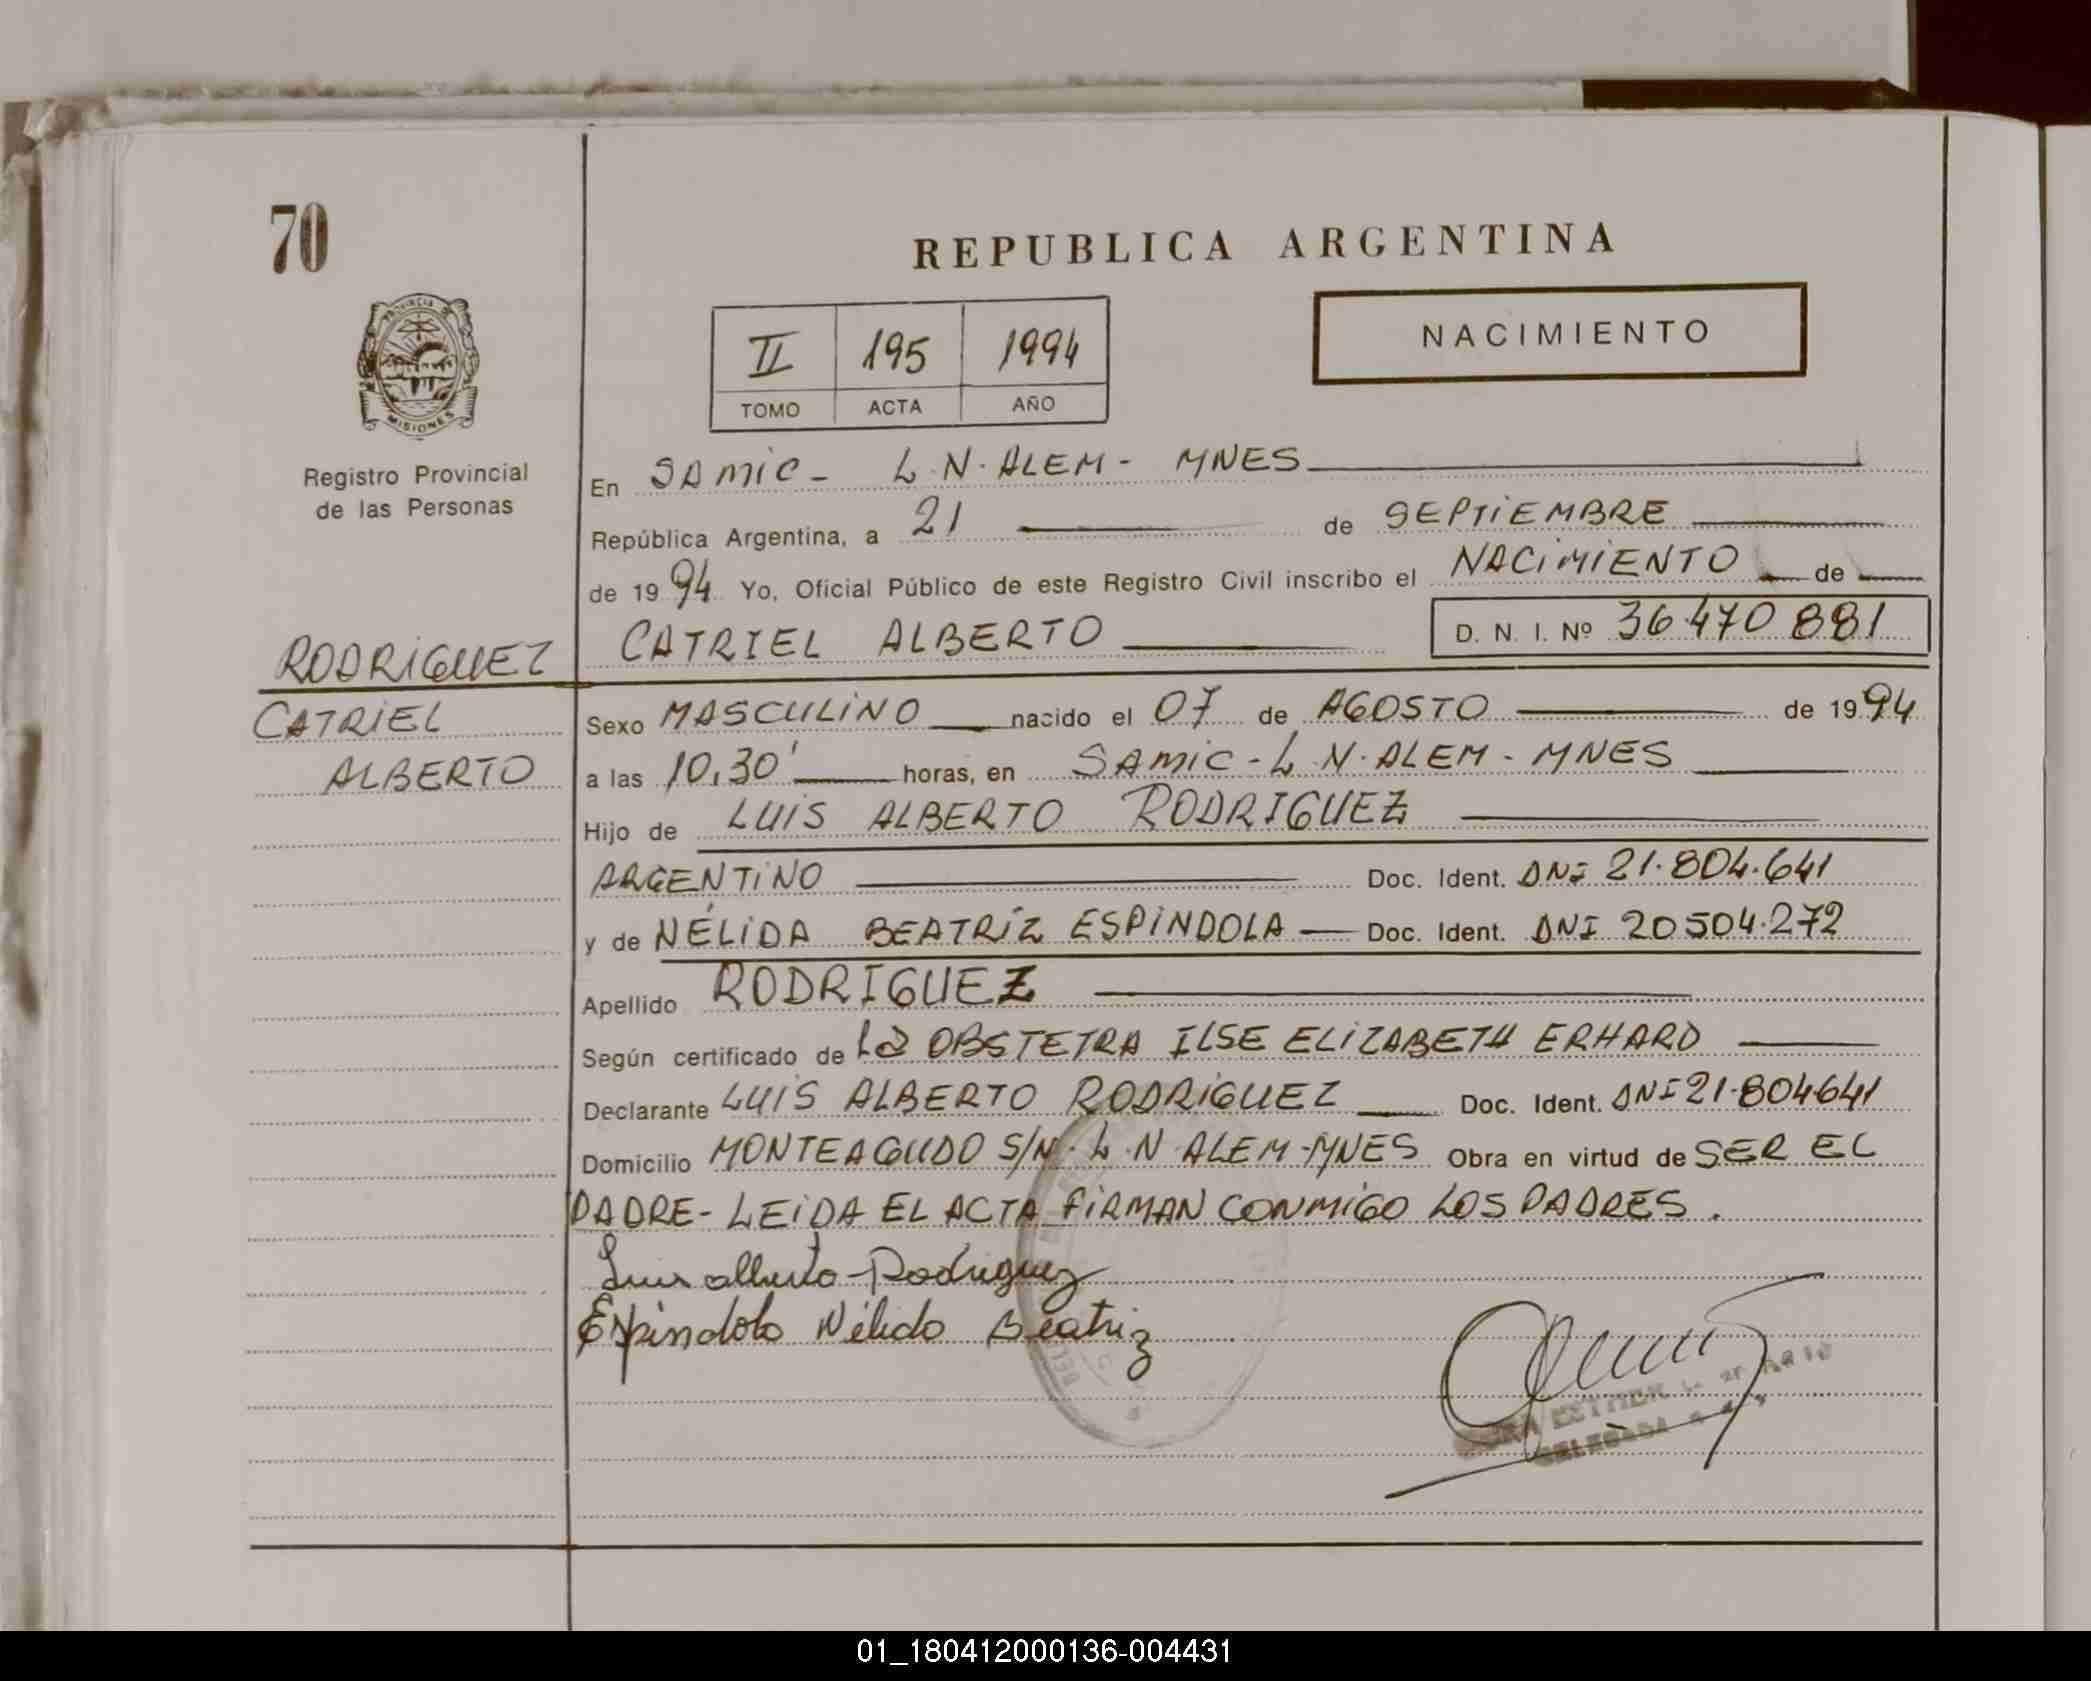 70
REPUBLICA ARGENTINA
II 195 1994
TOMO ACTA AÑO
NACIMIENTO
PROVINCIA DE
MISIONES
Registro Provincial
de las Personas
En SAMIC - L. N. ALEM - MNES
República Argentina, a 21 de SEPTIEMBRE
de 1994 Yo, Oficial Público de este Registro Civil inscribo el NACIMIENTO de
CATRIEL ALBERTO D. N. I. Nº 36.470 881
RODRIGUEZ
CATRIEL
ALBERTO
Sexo MASCULINO nacido el 07 de AGOSTO de 1994
a las 10,30' horas, en SAMIC - L. N. ALEM - MNES
Hijo de LUIS ALBERTO RODRIGUEZ
ARGENTINO Doc. Ident. DNI 21.804.641
y de NÉLIDA BEATRIZ ESPINDOLA Doc. Ident. DNI 20 504.272
Apellido RODRIGUEZ
Según certificado de La OBSTETRA ILSE ELIZABETH ERHARD
Declarante LUIS ALBERTO RODRIGUEZ Doc. Ident. DNI 21.804641
Domicilio MONTEAGUDO S/N. L. N. ALEM - MNES Obra en virtud de SER EL
PADRE - LEIDA EL ACTA FIRMAN CONMIGO LOS PADRES.
Luis alberto - Rodriguez
Espindola Nélida Beatriz
DELEGADA
01_180412000136-004431